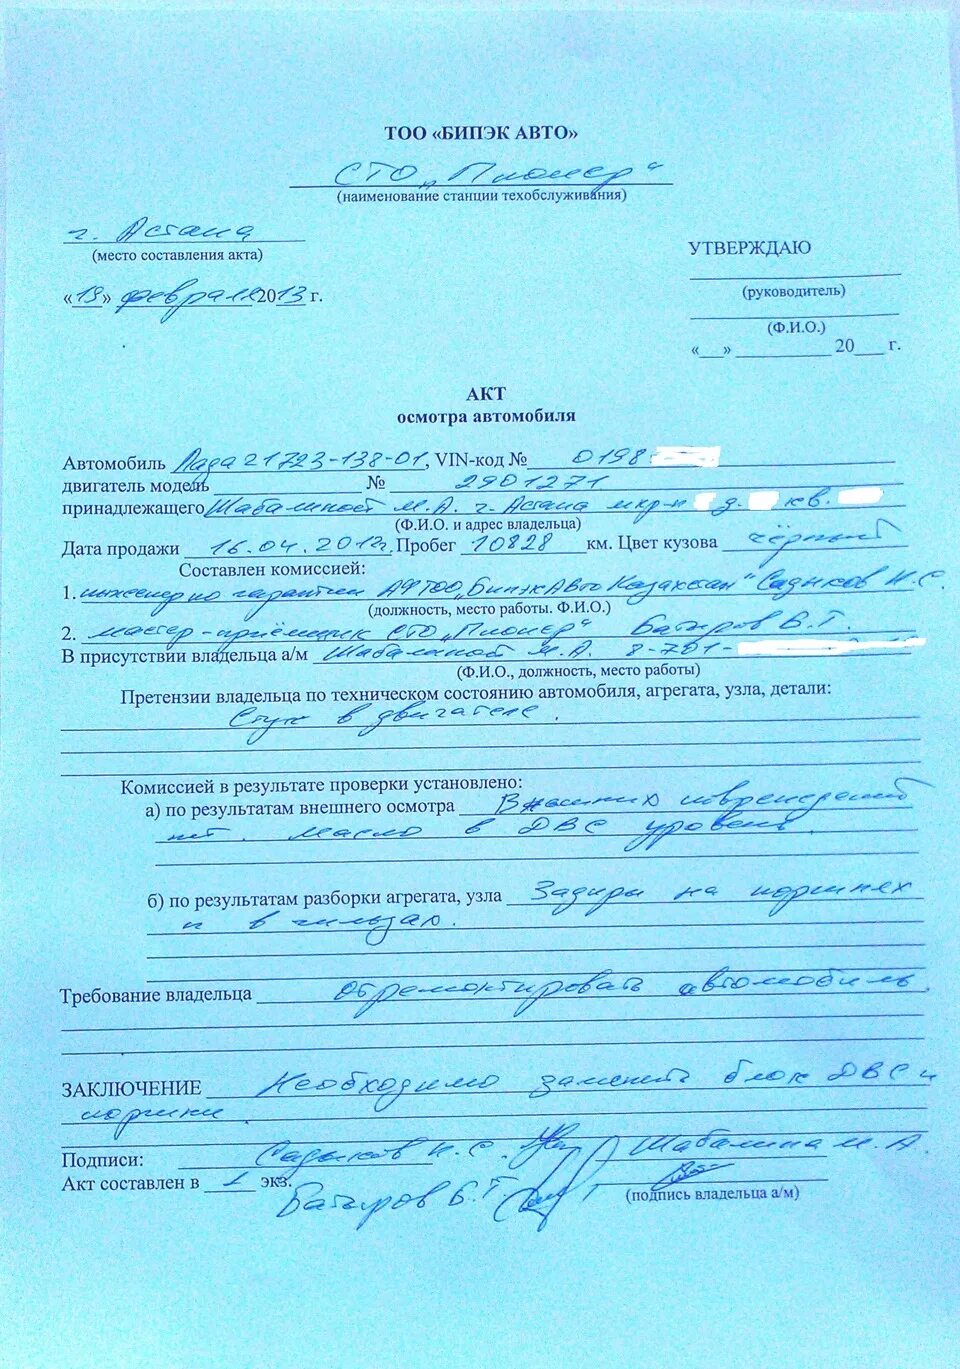 ТОО «БИПЭК АВТО»
СТО „Пионер“
(наименование станции техобслуживания)
г. Астана
(место составления акта)
УТВЕРЖДАЮ
(руководитель)
(Ф.И.О.)
«19» февраля 2013 г.
«___» __________ 20___ г.
АКТ
осмотра автомобиля
Автомобиль Лада 21723-138-01, VIN-код № 0198
двигатель модель № 2901271
принадлежащего Шабалиной М.А. г. Астана мкр-н д. кв.
(Ф.И.О. и адрес владельца)
Дата продажи 16.04.2012г. Пробег 10828 км. Цвет кузова чёрный
Составлен комиссией:
1. инженер по гарантии АФ ТОО „БипэкАвто Казахстан“ Садыков Н.С.
(должность, место работы. Ф.И.О.)
2. мастер-приёмщик СТО „Пионер“ Батыров Б.Т.
В присутствии владельца а/м Шабалиной М.А. 8-701-
(Ф.И.О., должность, место работы)
Претензии владельца по техническом состоянию автомобиля, агрегата, узла, детали:
Стук в двигателе.
Комиссией в результате проверки установлено:
а) по результатам внешнего осмотра Внешних повреждений
нет. Масло в ДВС уровень.
б) по результатам разборки агрегата, узла Задиры на поршнях
и в гильзах.
Требование владельца Отремонтировать автомобиль.
ЗАКЛЮЧЕНИЕ Необходимо заменить блок ДВС и
поршни.
Подписи: Садыков Н.С. Шабалина М.А.
Акт составлен в экз.
Батыров Б.Т
(подпись владельца а/м)